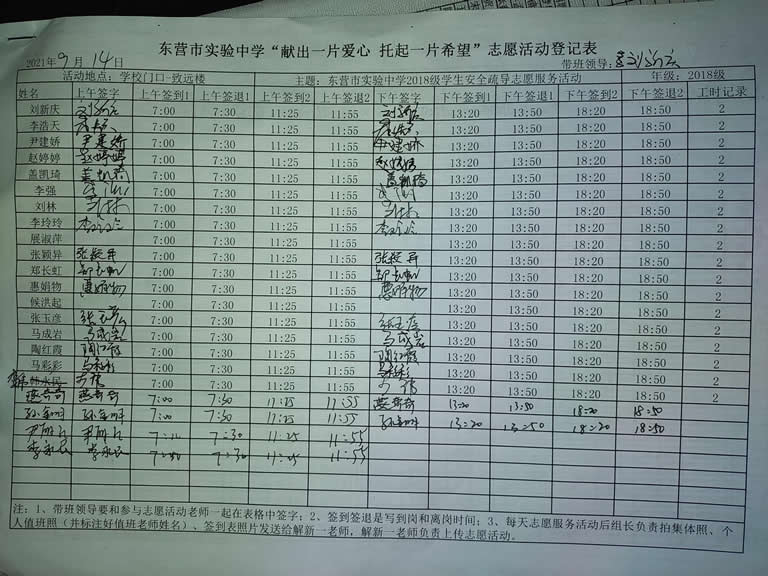 东营市实验中学“献出一片爱心 托起一片希望”志愿活动登记表
2021年9月14日 带班领导:
活动地点: 学校门口-致远楼 主题: 东营市实验中学2018级学生安全疏导志愿服务活动 年级: 2018级
姓名 上午签字 上午签到1 上午签退1 上午签到2 上午签退2 下午签字 下午签到1 下午签退1 下午签到2 下午签退2 工时记录
刘新庆 7:00 7:30 11:25 11:55 13:20 13:50 18:20 18:50 2
李浩天 7:00 7:30 11:25 11:55 13:20 13:50 18:20 18:50 2
尹建娇 尹建娇 7:00 7:30 11:25 11:55 尹建娇 13:20 13:50 18:20 18:50 2
赵婷婷 赵婷婷 7:00 7:30 11:25 11:55 赵婷婷 13:20 13:50 18:20 18:50 2
盖凯琦 7:00 7:30 11:25 11:55 13:20 13:50 18:20 18:50 2
李强 7:00 7:30 11:25 11:55 13:20 13:50 18:20 18:50 2
刘林 7:00 7:30 11:25 11:55 13:20 13:50 18:20 18:50 2
李玲玲 7:00 7:30 11:25 11:55 13:20 13:50 18:20 18:50 2
展淑萍 7:00 7:30 11:25 11:55 13:20 13:50 18:20 18:50 2
张颖异 7:00 7:30 11:25 11:55 13:20 13:50 18:20 18:50 2
郑长虹 7:00 7:30 11:25 11:55 13:20 13:50 18:20 18:50 2
惠娟物 惠娟物 7:00 7:30 11:25 11:55 惠娟物 13:20 13:50 18:20 18:50 2
候洪起 7:00 7:30 11:25 11:55 13:20 13:50 18:20 18:50 2
张玉彦 张玉彦 7:00 7:30 11:25 11:55 张玉彦 13:20 13:50 18:20 18:50 2
马成岩 马成岩 7:00 7:30 11:25 11:55 马成岩 13:20 13:50 18:20 18:50 2
陶红霞 陶红霞 7:00 7:30 11:25 11:55 陶红霞 13:20 13:50 18:20 18:50 2
马彩彩 马彩彩 7:00 7:30 11:25 11:55 马彩彩 13:20 13:50 18:20 18:50 2
韩永民 7:00 7:30 11:25 11:55 13:20 13:50 18:20 18:50 2
7:00 7:30 11:25 11:55 13:20 13:50 18:20 18:50
7:00 7:30 11:25 11:55 13:20 13:50 18:20 18:50
7:30 11:25 11:55
7:30 11:55
注: 1、带班领导要和参与志愿活动老师一起在表格中签字; 2、签到签退是写到岗和离岗时间; 3、每天志愿服务活动后组长负责拍集体照、个
人值班照(并标注好值班老师姓名)、签到表照片发送给解新一老师, 解新一老师负责上传志愿活动。